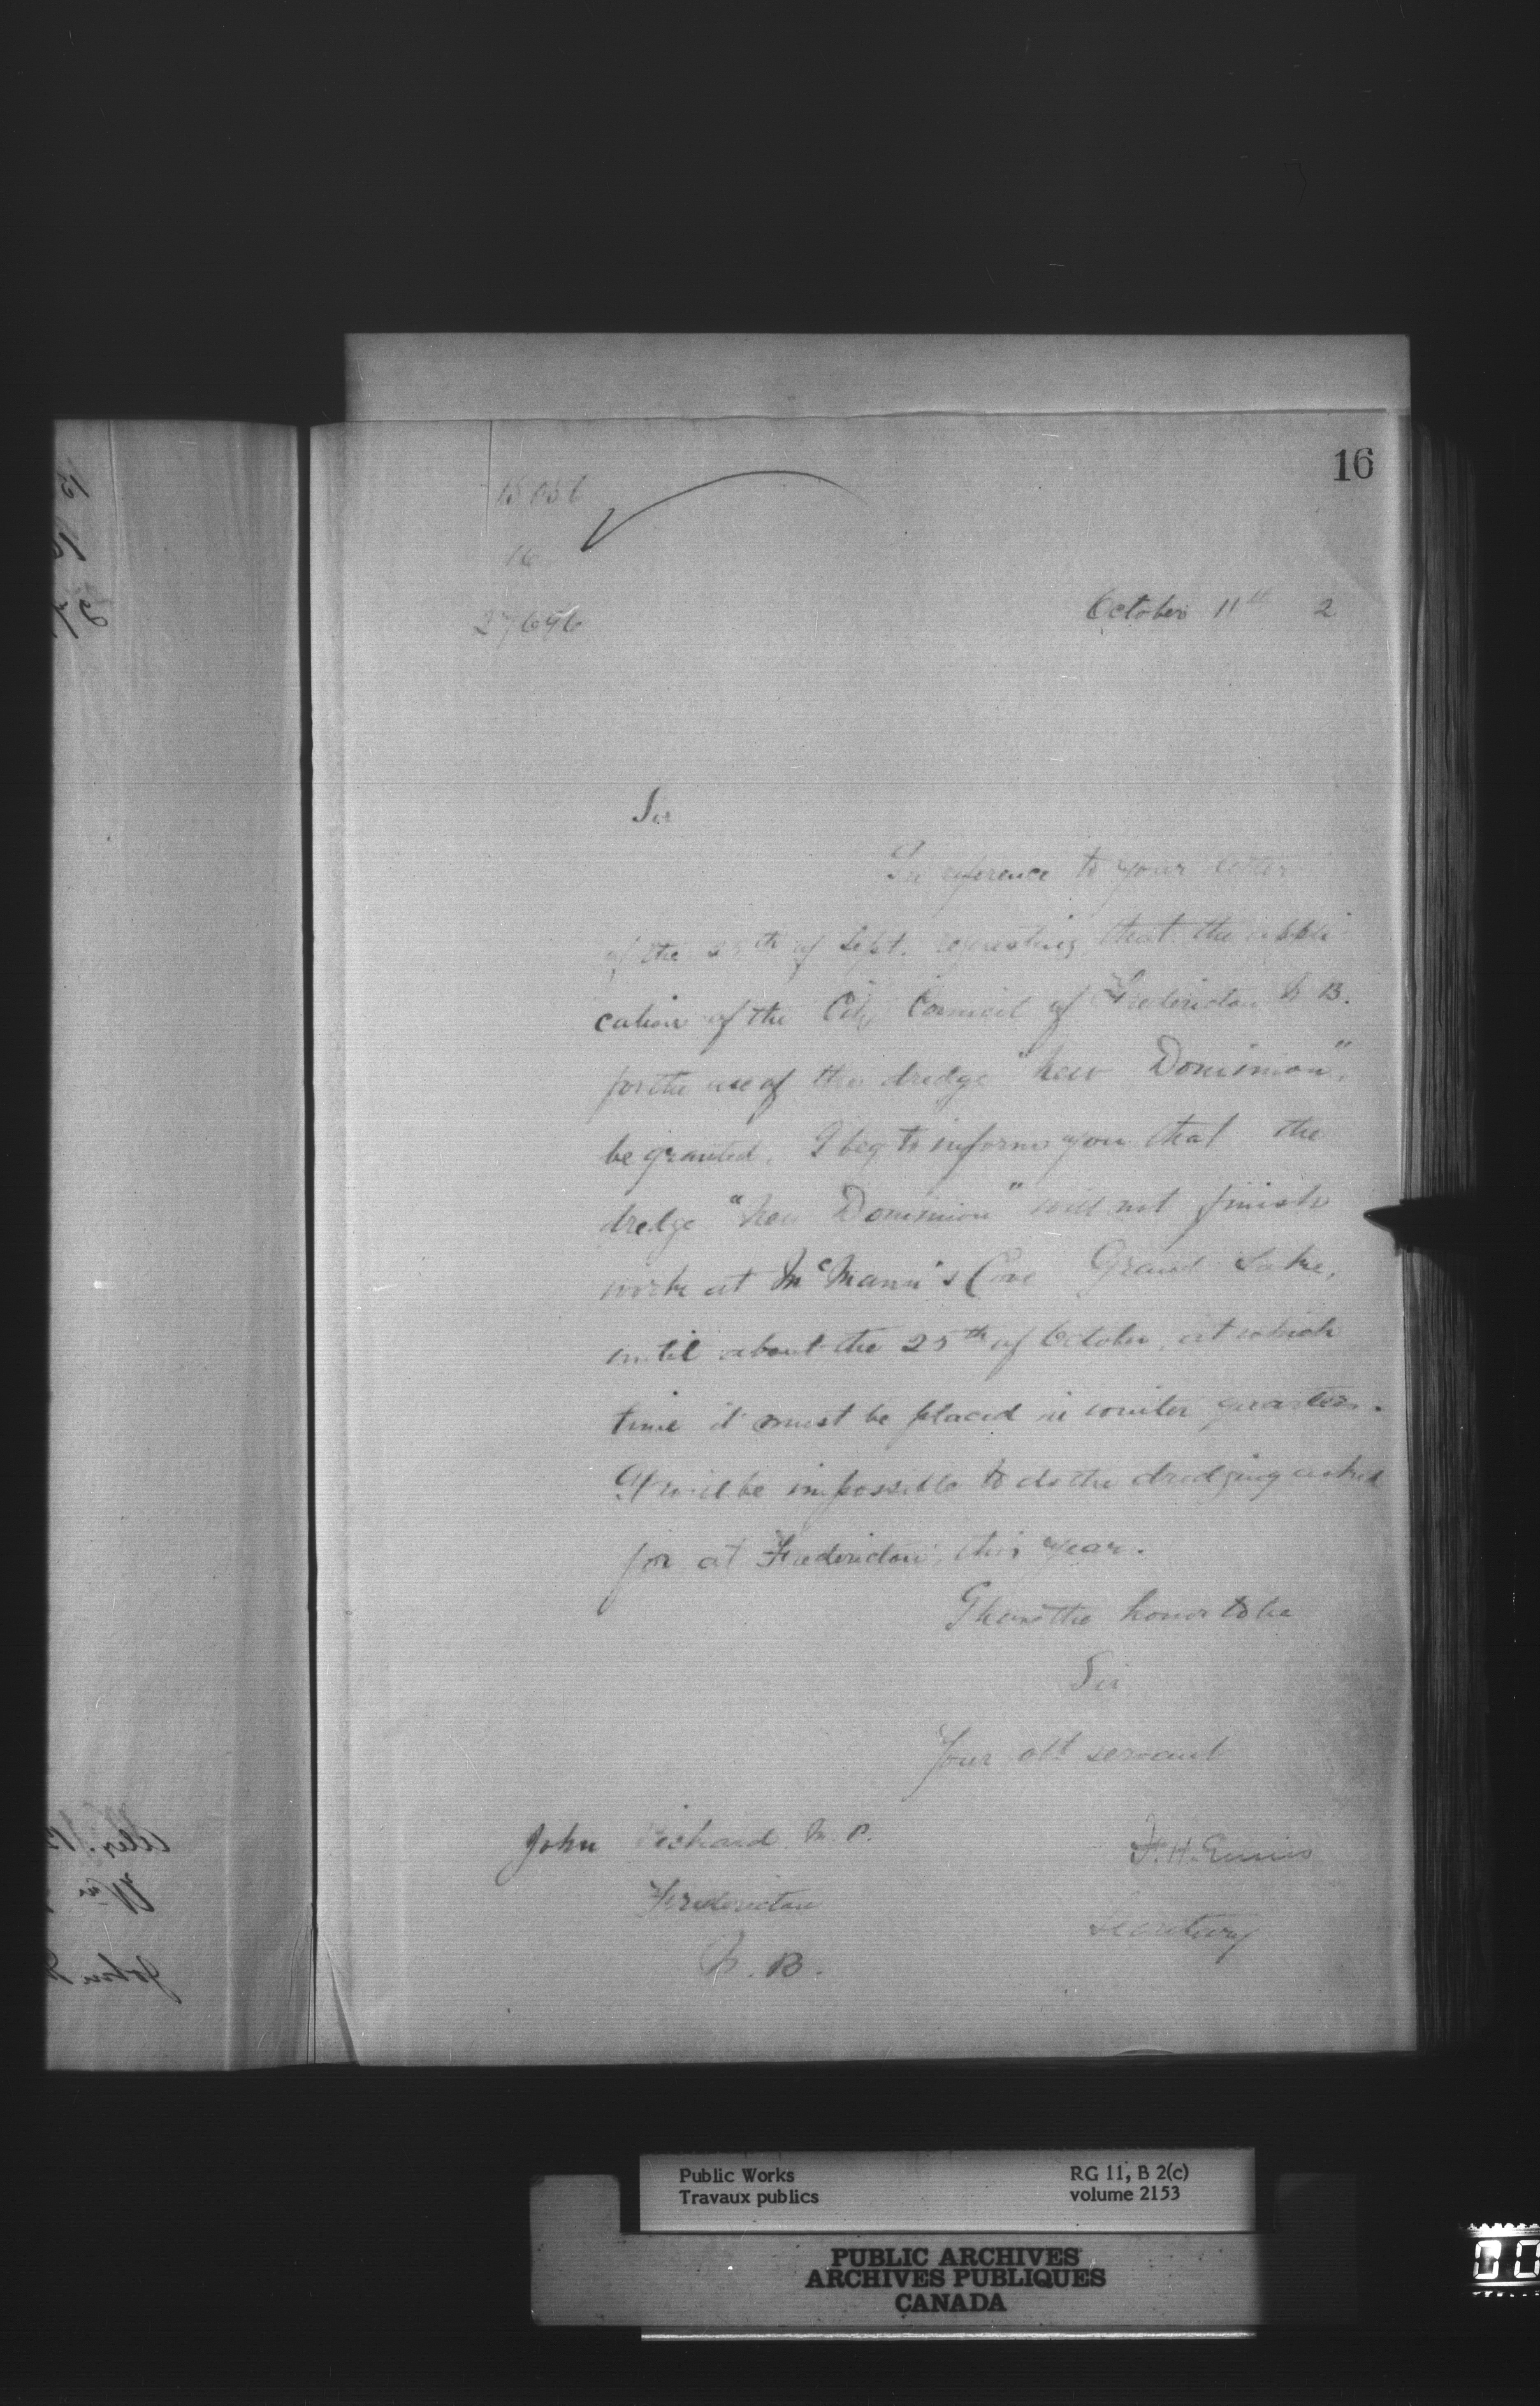 16
16
27696
October 11th 2
Sir
In reference to your letter
of the 25th of Sept. requesting that the appli
cation of the City Council of Fredericton N B.
for the use of the dredge "New Dominion",
be granted. I beg to inform you that the
dredge "New Dominion" will not finish
work at McMann's Cove Grand Lake,
until about the 25th of October, at which
time it must be placed in winter quarters.
It will be impossible to do the dredging asked
for at Fredericton, this year.
I have the honor to be
Sir
Your obt servant
John Pickard M. P.
F. H. Ennis
Fredericton
Secretary
N. B.
Public Works
Travaux publics
RG 11, B 2(c)
volume 2153
PUBLIC ARCHIVES
ARCHIVES PUBLIQUES
CANADA